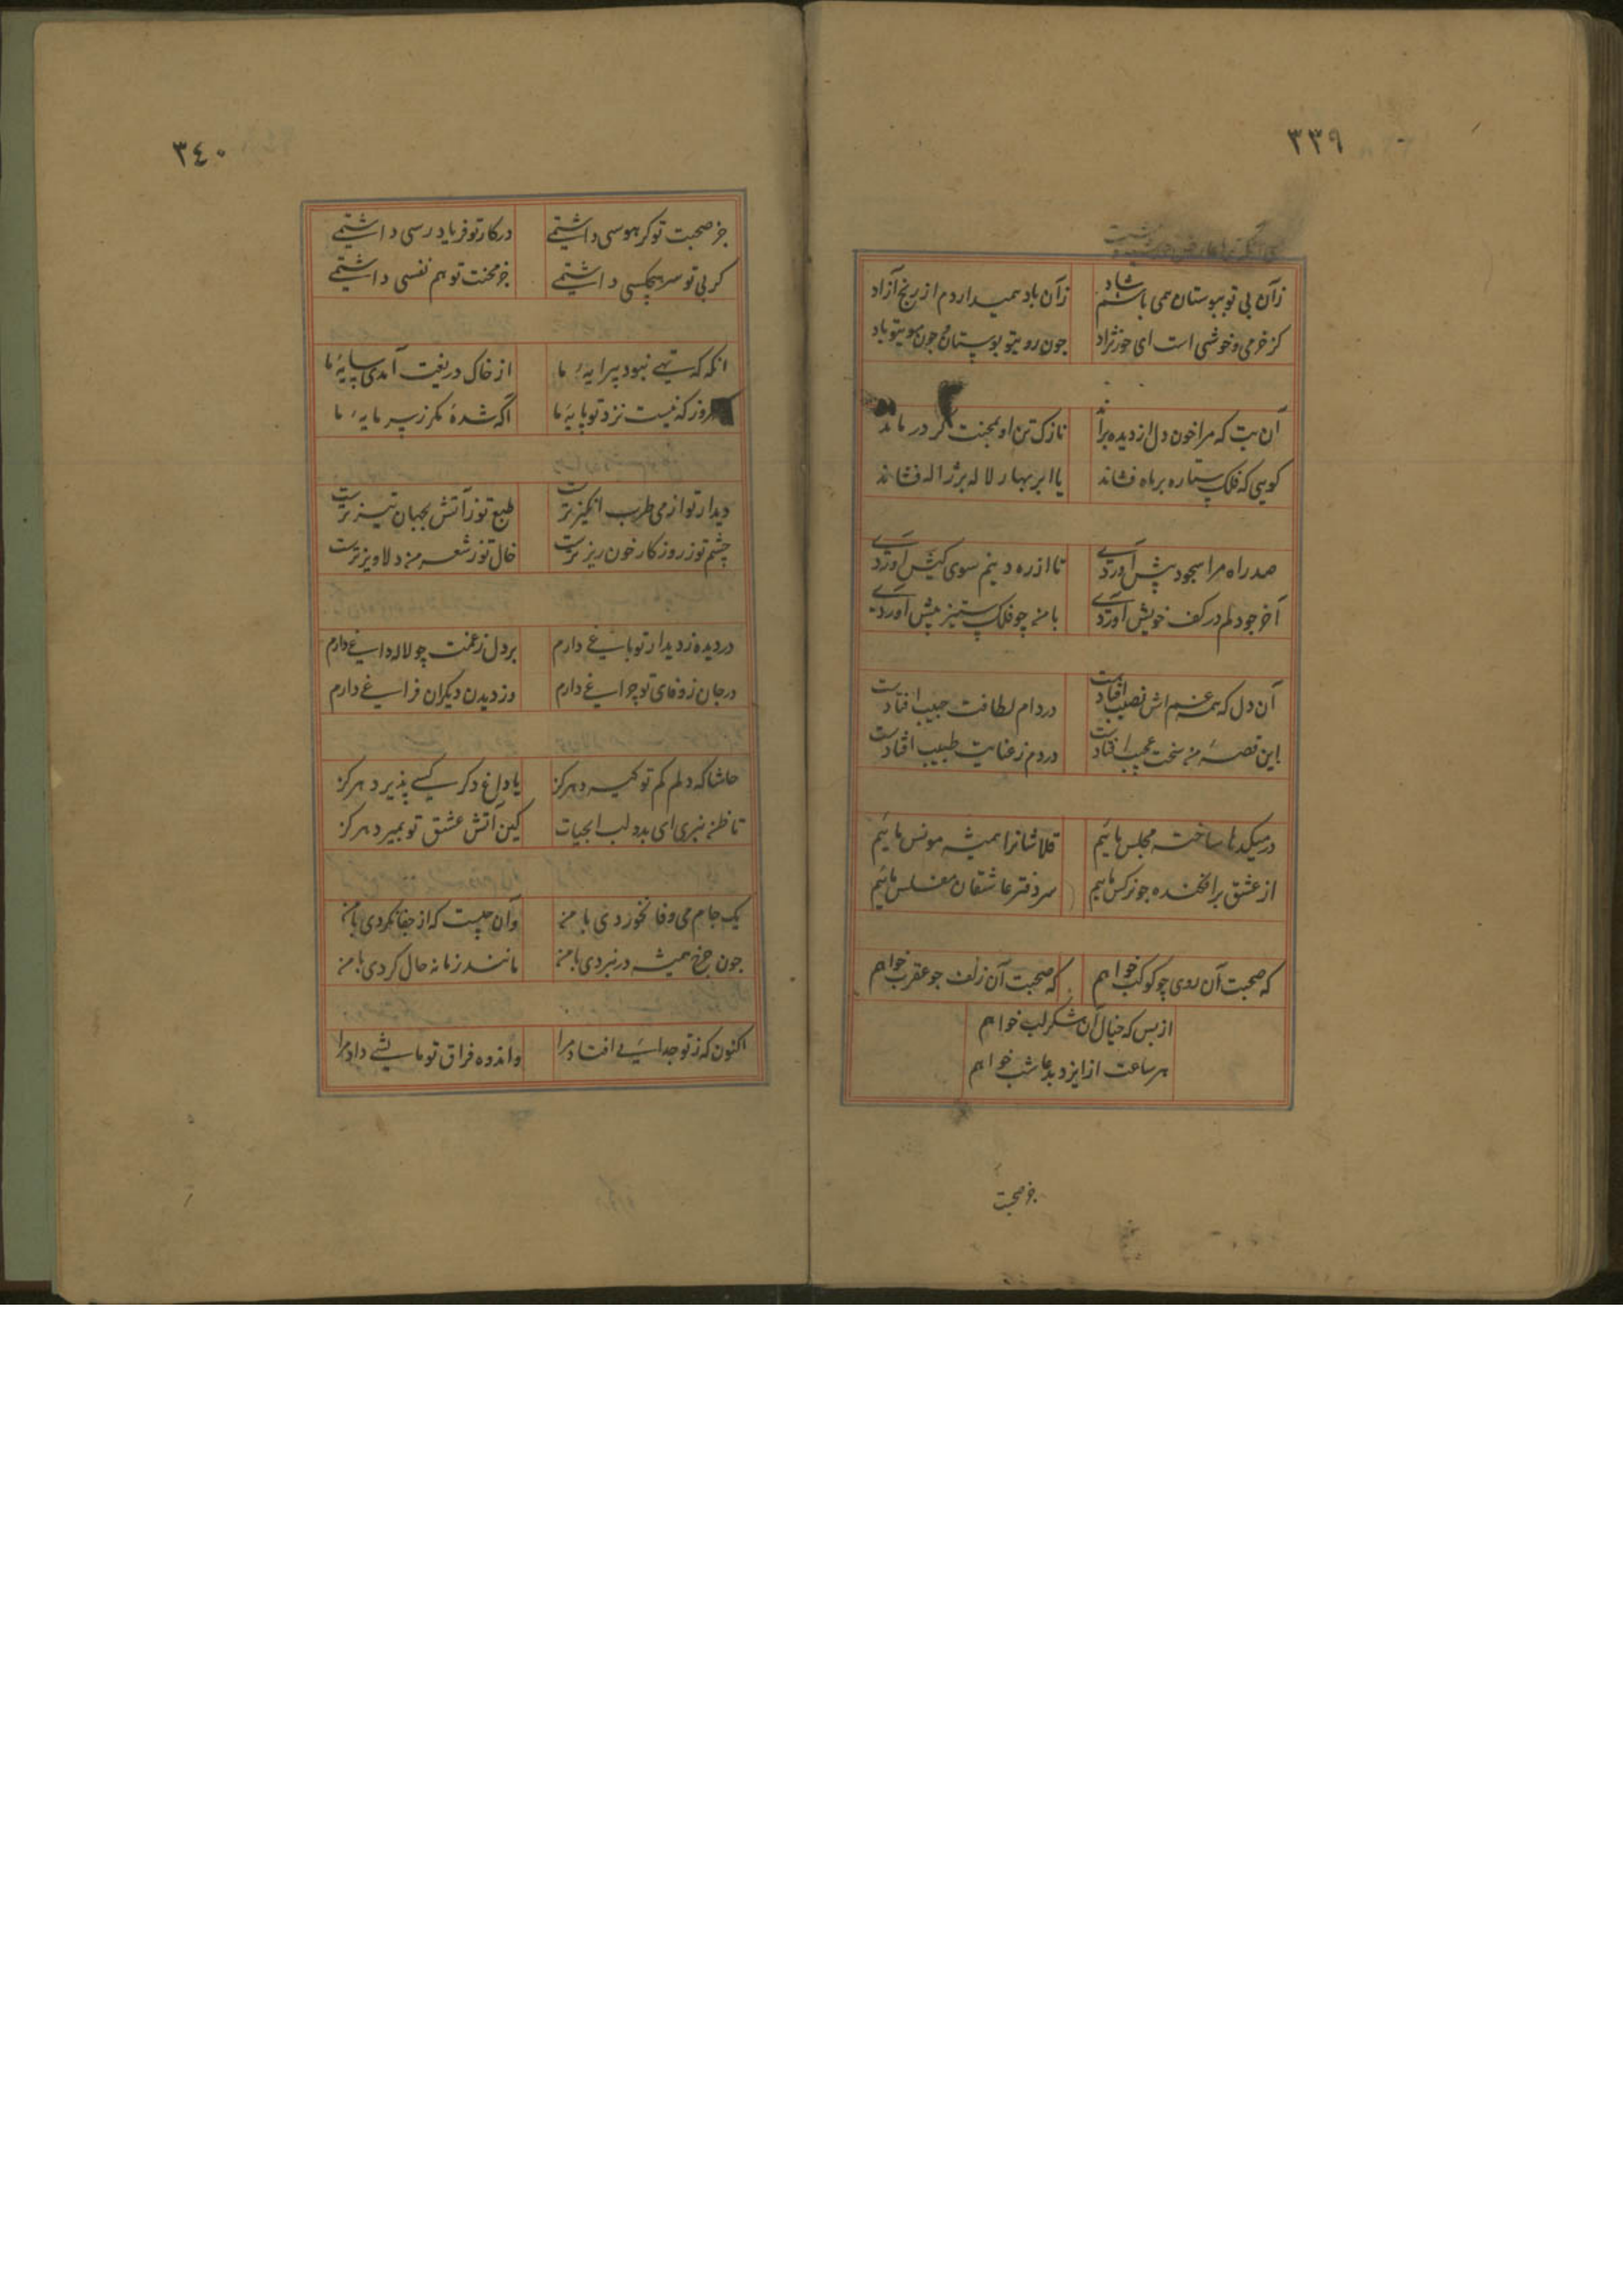 ٣٣٩
زآن بی تو ببوستان همی باشم شاد زآن باد همیداردم از رنج آزاد
کز خرمی و خوشی است ای حورنژاد چون روی تو بوستان و چون بوی تو باد
آن بت که مرا خون دل از دیده براند نازک تن او بمحنت کر درماند
کویی که فلک ستاره بر ماه فشاند یا ابر بهار لاله بر ژاله فشاند
صد راه مرا سجود پیش آوردی تا از ره دینم سوی کیش آوردی
آخر چو دلم در کف خویش آوردی با من چو فلک ستیز پیش آوردی
آن دل که همه غم اش نصیب افتادست در دام لطافت حبیب افتادست
این قصه من سخت عجب افتادست دردم ز عنایت طبیب افتادست
در میکدها ساخته مجلس مائیم قلاشانرا همیشه مونس مائیم
از عشق سرافکنده چو نرکس مائیم سر دفتر عاشقان مفلس مائیم
که صحبت آن روی چو کوکب خواهم که صحبت آن زلف چو عقرب خواهم
از بس که خیال آن شکر لب خواهم
هر ساعت از ایزد بدعا شب خواهم
جز صحبت
٣٤٠
جز صحبت تو کر هوسی داشتمی در کار تو فریادرسی داشتمی
کر بی تو سر هیچکسی داشتمی جز محنت تو هم نفسی داشتمی
انکه که تهی نبود پیرایه ما از خاک دریغت آمدی سایه ما
امروز که نیست نزد تو پایه ما آکه شدهٔ مکر ز سرمایه ما
دیدار تو از می طرب انکیزترست طبع تو ز آتش بجهان تیزترست
چشم تو ز روزکار خون ریزترست خال تو ز شعر من دلاویزترست
در دیده ز دیدار تو باغی دارم بر دل ز غمت چو لاله داغی دارم
در جان ز وفای تو چراغی دارم وز دیدن دیکران فراغی دارم
حاشا که دلم کم تو کیرد هرکز یا داغ دکر کسی پذیرد هرکز
تا ظن نبری ای بدو لب ابحیات کین آتش عشق تو بمیرد هرکز
یک جام می وفا نخوردی با من وآن چیست که از جفا نکردی با من
چون چرخ همیشه در نبردی با من مانند زمانه حال کردی با من
اکنون که ز تو جدائی افتاد مرا واندوه فراق تو مالشی داد مرا